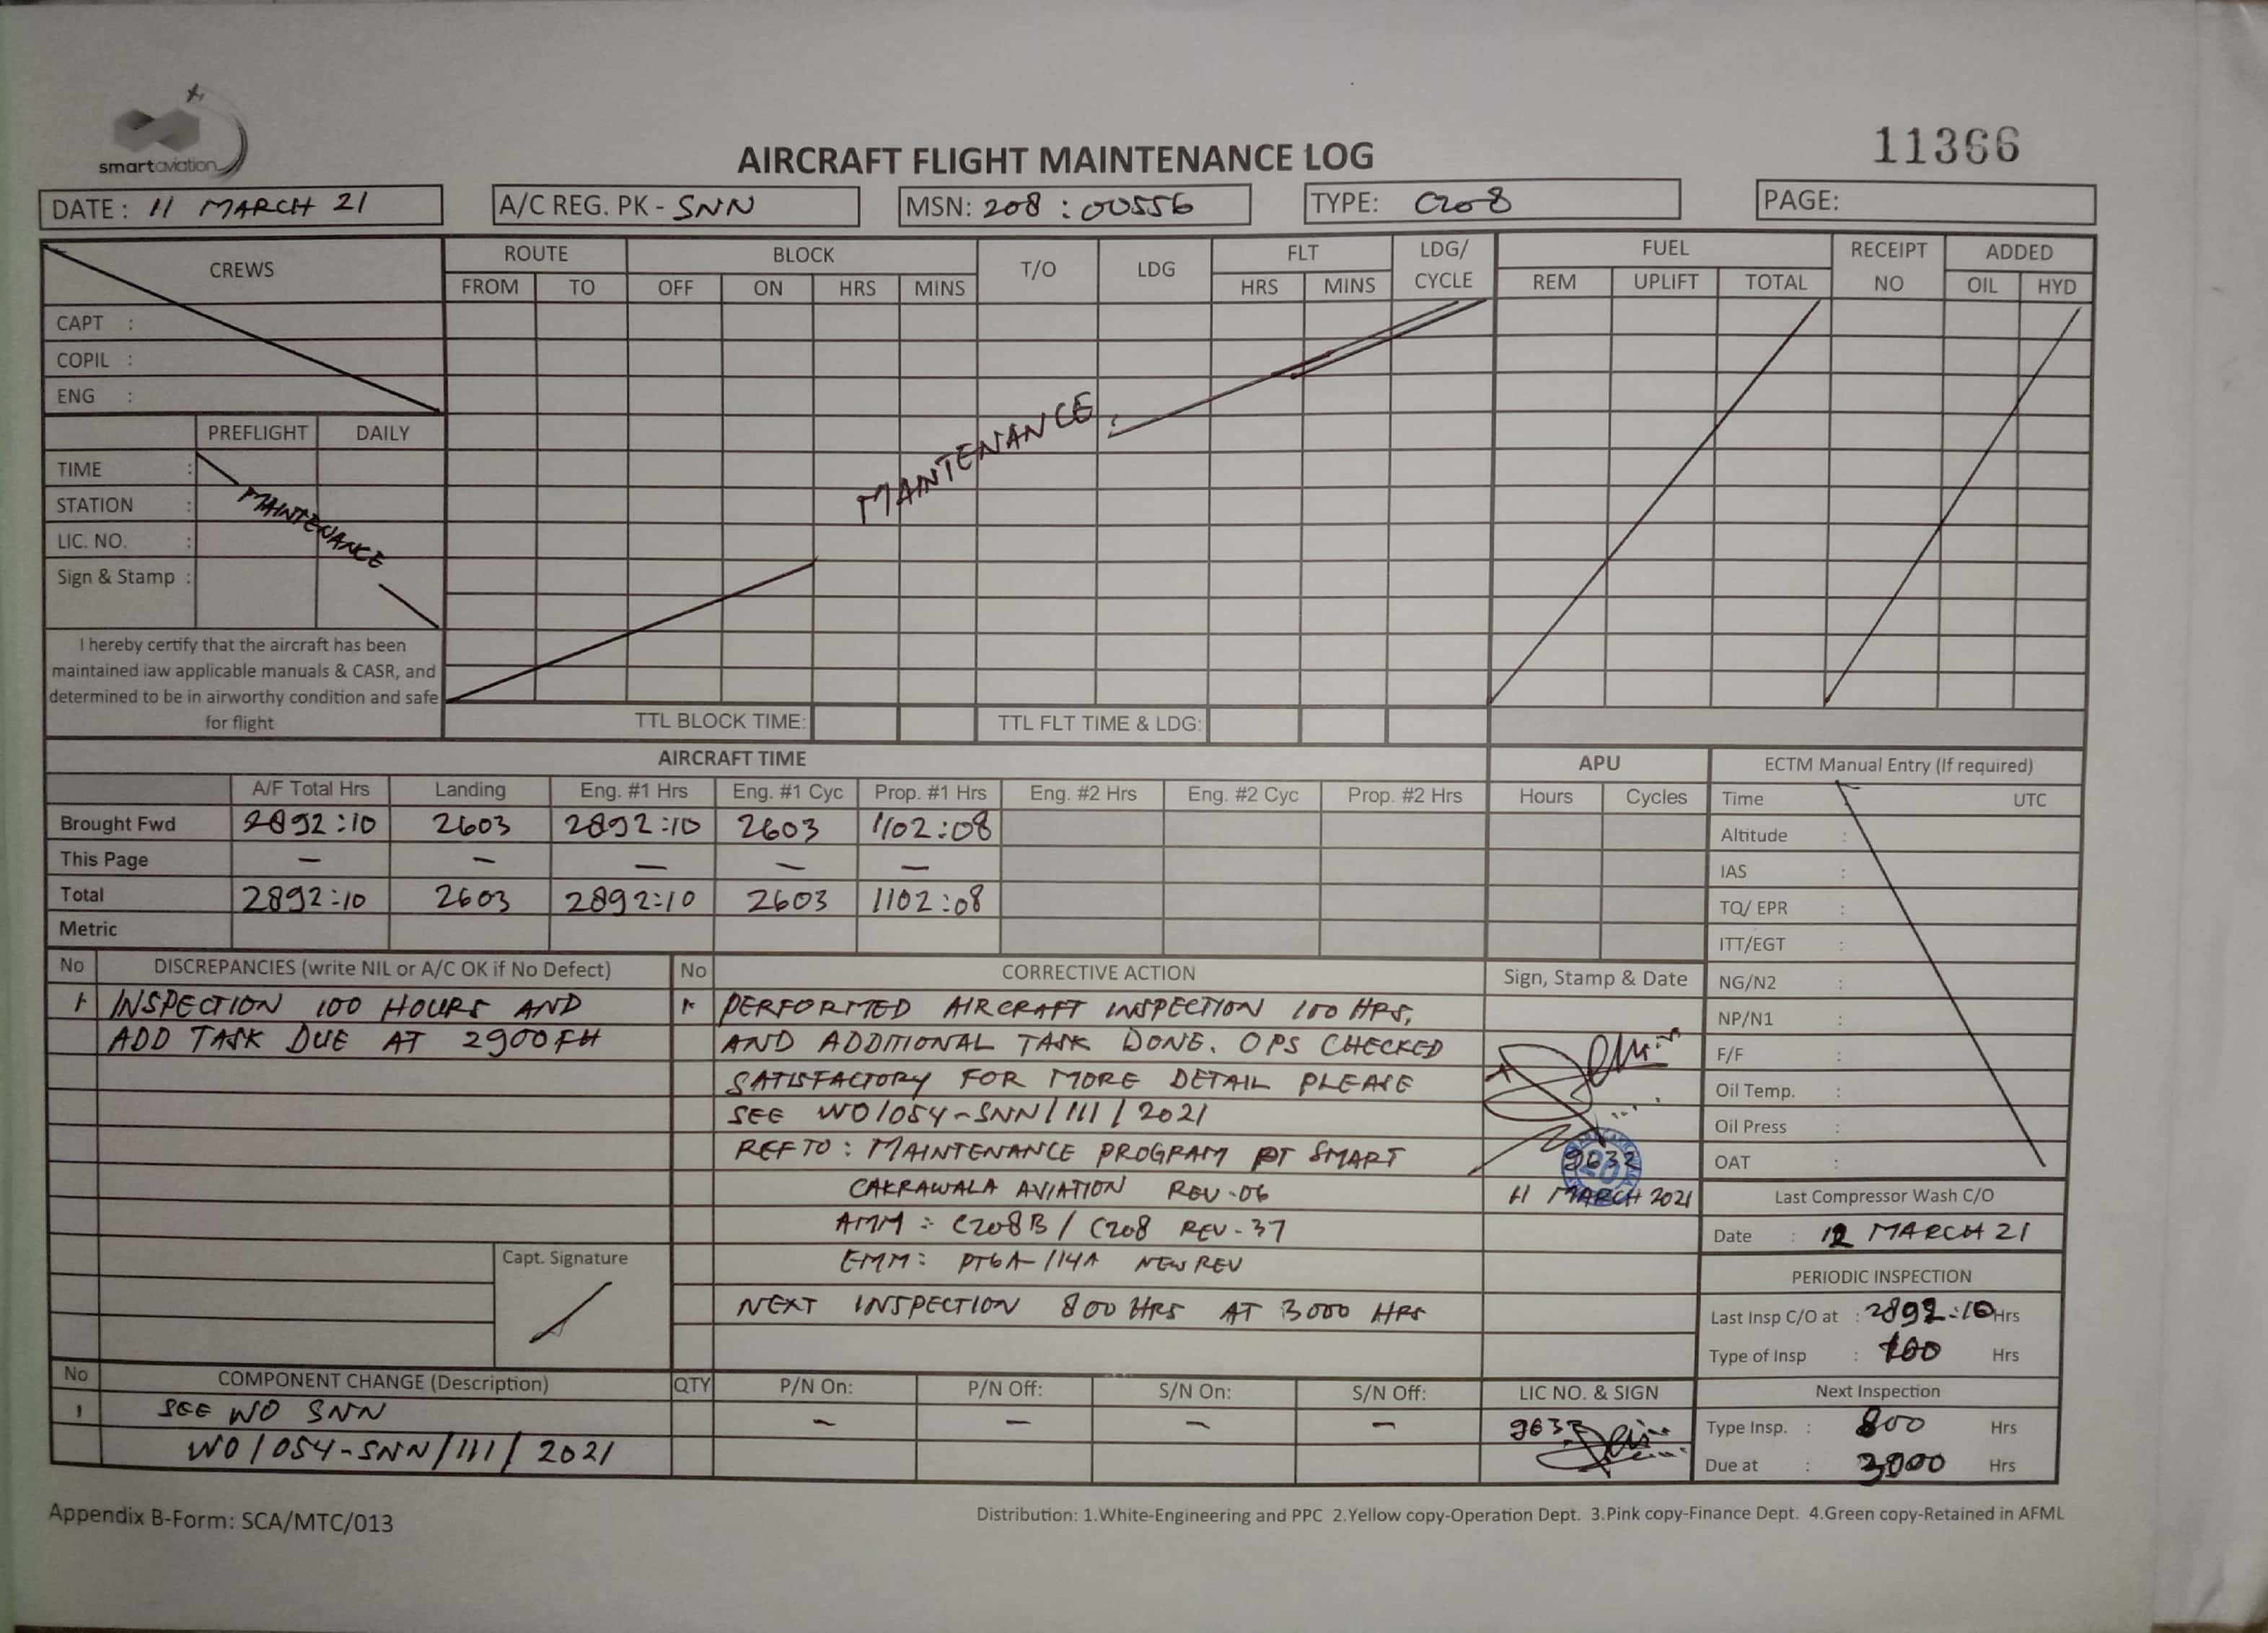 smartaviation
11366
AIRCRAFT FLIGHT MAINTENANCE LOG
DATE : 11 MARCH 21
A/C REG. PK - SNN
MSN: 208 : 00556
TYPE: C208
PAGE:
CREWS
ROUTE BLOCK T/O LDG FLT LDG/ CYCLE FUEL RECEIPT NO ADDED
FROM TO OFF ON HRS MINS HRS MINS REM UPLIFT TOTAL OIL HYD
CAPT :
COPIL :
ENG :
MAINTENANCE
PREFLIGHT DAILY
TIME :
STATION :
LIC. NO. :
Sign & Stamp :
MAINTENANCE
I hereby certify that the aircraft has been
maintained iaw applicable manuals & CASR, and
determined to be in airworthy condition and safe
for flight
TTL BLOCK TIME: TTL FLT TIME & LDG:
AIRCRAFT TIME APU
A/F Total Hrs Landing Eng. #1 Hrs Eng. #1 Cyc Prop. #1 Hrs Eng. #2 Hrs Eng. #2 Cyc Prop. #2 Hrs Hours Cycles
Brought Fwd 2892:10 2603 2892:10 2603 1102:08
This Page – – – – –
Total 2892:10 2603 2892:10 2603 1102:08
Metric
ECTM Manual Entry (If required)
Time UTC
Altitude :
IAS :
TQ/ EPR :
ITT/EGT :
NG/N2 :
NP/N1 :
F/F :
Oil Temp. :
Oil Press :
OAT :
No DISCREPANCIES (write NIL or A/C OK if No Defect)
1 INSPECTION 100 HOURS AND
ADD TASK DUE AT 2900FH
Capt. Signature
No CORRECTIVE ACTION Sign, Stamp & Date
1. PERFORMED AIRCRAFT INSPECTION 100 HRS,
AND ADDITIONAL TASK DONE. OPS CHECKED
SATISFACTORY FOR MORE DETAIL PLEASE
SEE WO/054-SNN/III/2021
REF TO : MAINTENANCE PROGRAM PT SMART
CAKRAWALA AVIATION REV-06
AMM : C208B / C208 REV-37
EMM: PT6A-114A NEW REV
NEXT INSPECTION 800 HRS AT 3000 HRS
9632
11 MARCH 2021
Last Compressor Wash C/O
Date : 12 MARCH 21
PERIODIC INSPECTION
Last Insp C/O at : 2892:10 Hrs
Type of Insp : 100 Hrs
Next Inspection
Type Insp. : 800 Hrs
Due at : 3000 Hrs
No COMPONENT CHANGE (Description) QTY P/N On: P/N Off: S/N On: S/N Off: LIC NO. & SIGN
1 SEE WO SNN – – – – 9632
WO/054-SNN/III/2021
Appendix B-Form: SCA/MTC/013
Distribution: 1.White-Engineering and PPC 2.Yellow copy-Operation Dept. 3.Pink copy-Finance Dept. 4.Green copy-Retained in AFML